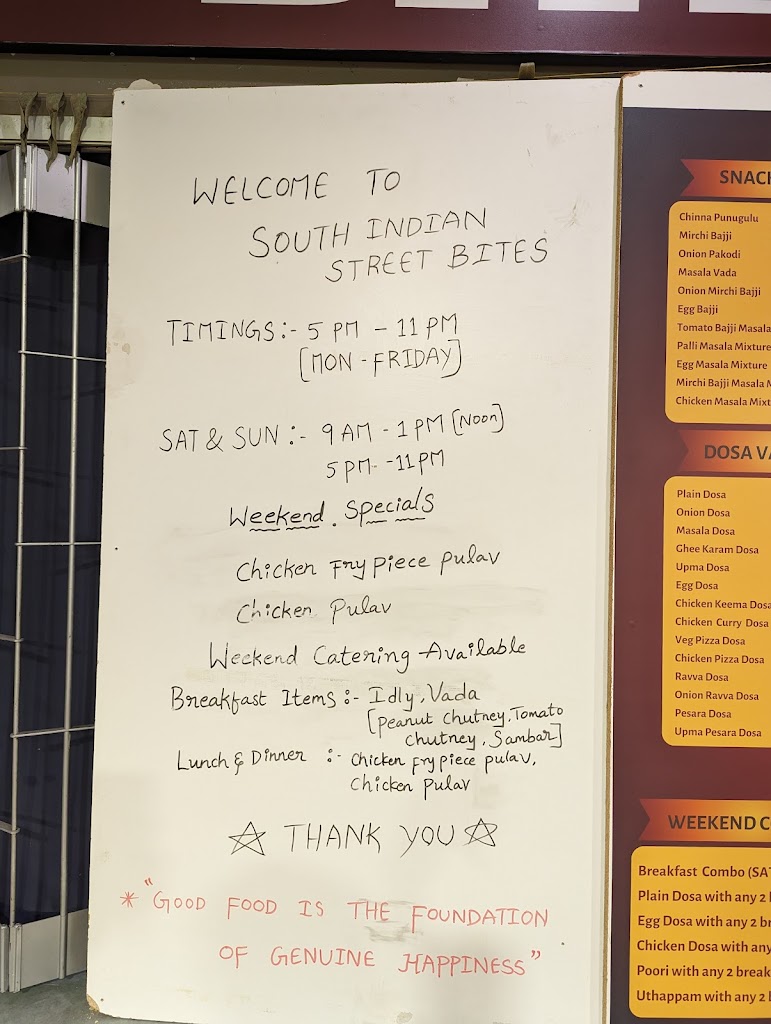 WELCOME TO
SOUTH INDIAN
STREET BITES
TIMINGS:- 5 PM - 11 PM
[MON - FRIDAY]
SAT & SUN :- 9 AM - 1 PM [Noon]
5 PM - 11 PM
Weekend Specials
Chicken Fry Piece Pulav
Chicken Pulav
Weekend Catering Available
Breakfast Items :- Idly, Vada
[Peanut Chutney, Tomato
Chutney, Sambar]
Lunch & Dinner :- Chicken fry piece pulav,
Chicken Pulav
☆ THANK YOU ☆
* "GOOD FOOD IS THE FOUNDATION
OF GENUINE HAPPINESS"
Chinna Punugulu
Mirchi Bajji
Onion Pakodi
Masala Vada
Onion Mirchi Bajji
Egg Bajji
Tomato Bajji Masala
Palli Masala Mixture
Egg Masala Mixture
Mirchi Bajji Masala
Chicken Masala
DOSA
Plain Dosa
Onion Dosa
Masala Dosa
Ghee Karam Dosa
Upma Dosa
Egg Dosa
Chicken Keema Dosa
Chicken Curry Dosa
Veg Pizza Dosa
Chicken Pizza Dosa
Ravva Dosa
Onion Ravva Dosa
Pesara Dosa
Upma Pesara Dosa
WEEKEND
Breakfast Combo
Plain Dosa with any 2
Egg Dosa with any 2
Chicken Dosa with any
Poori with any 2
Uthappam with any 2